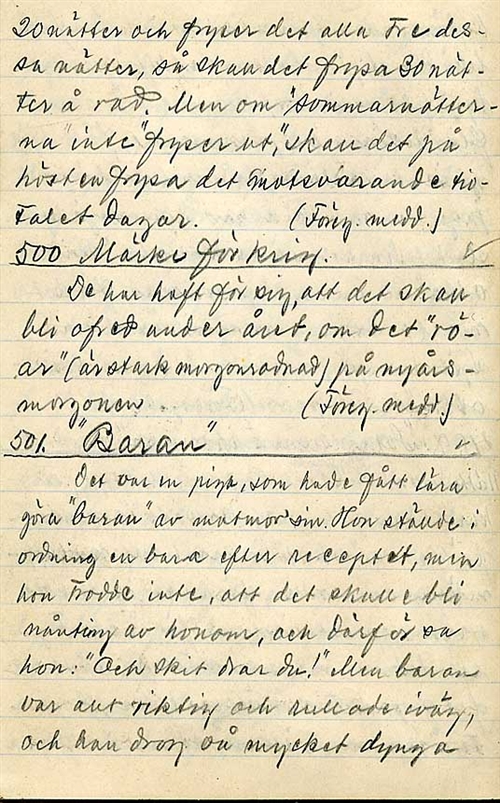 20 nätter och fryser det alla tre des-
sa nätter, så skall det frysa 30 nät-
ter å rad. Men om "sommarnätter-
na" inte "fryser ut," skall det på
hösten frysa det motsvarande tio-
talet dagar. (Föreg. medd.)
500 Märke för krig.
De har haft för sig, att det skall
bli ofred under året, om det "rö-
ar" (är stark morgonrodnad) på nyårs-
morgonen. (Föreg. medd.)
501. "Baran"
Det var en piga, som hade fått lära
göra "baran" av matmor sin. Hon ställde i
ordning en bara efter receptet, men
hon trodde inte, att det skulle bli
nånting av honom, och därför sa
hon: "Och skit drar du!" Men baran
var allt riktig och rullade iväg,
och han drog så mycket dynga